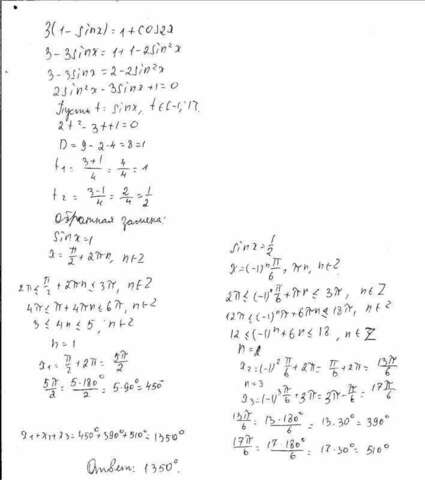 3(1-sinx)=1+cos2x
3-3sinx=1+1-2sin²x
3-3sinx=2-2sin²x
2sin²x-3sinx+1=0
Пусть t=sinx, t∈[-1;1].
2t²-3t+1=0
D=9-2·4=8=1
t₁=(3+1)/4=4/4=1
t₂=(3-1)/4=2/4=1/2
Обратная замена:
sinx=1
x=π/2+2πn, n∈Z
2π≤π/2+2πn≤3π, n∈Z
4π≤π+4πn≤6π, n∈Z
3≤4n≤5, n∈Z
n=1
x₁=π/2+2π=5π/2
5π/2=5·180°/2=5·90°=450°
x₁+x₂+x₃=450°+390°+510°=1350°
Ответ: 1350°.
sinx=1/2
x=(-1)ⁿπ/6+πn, n∈Z
2π≤(-1)ⁿπ/6+πn≤3π, n∈Z
12π≤(-1)ⁿπ+6πn≤18π, n∈Z
12≤(-1)ⁿ+6n≤18, n∈Z
n=2
x₂=(-1)²π/6+2π=π/6+2π=13π/6
n=3
x₃=(-1)³π/6+3π=3π-π/6=17π/6
13π/6=13·180°/6=13·30°=390°
17π/6=17·180°/6=17·30°=510°